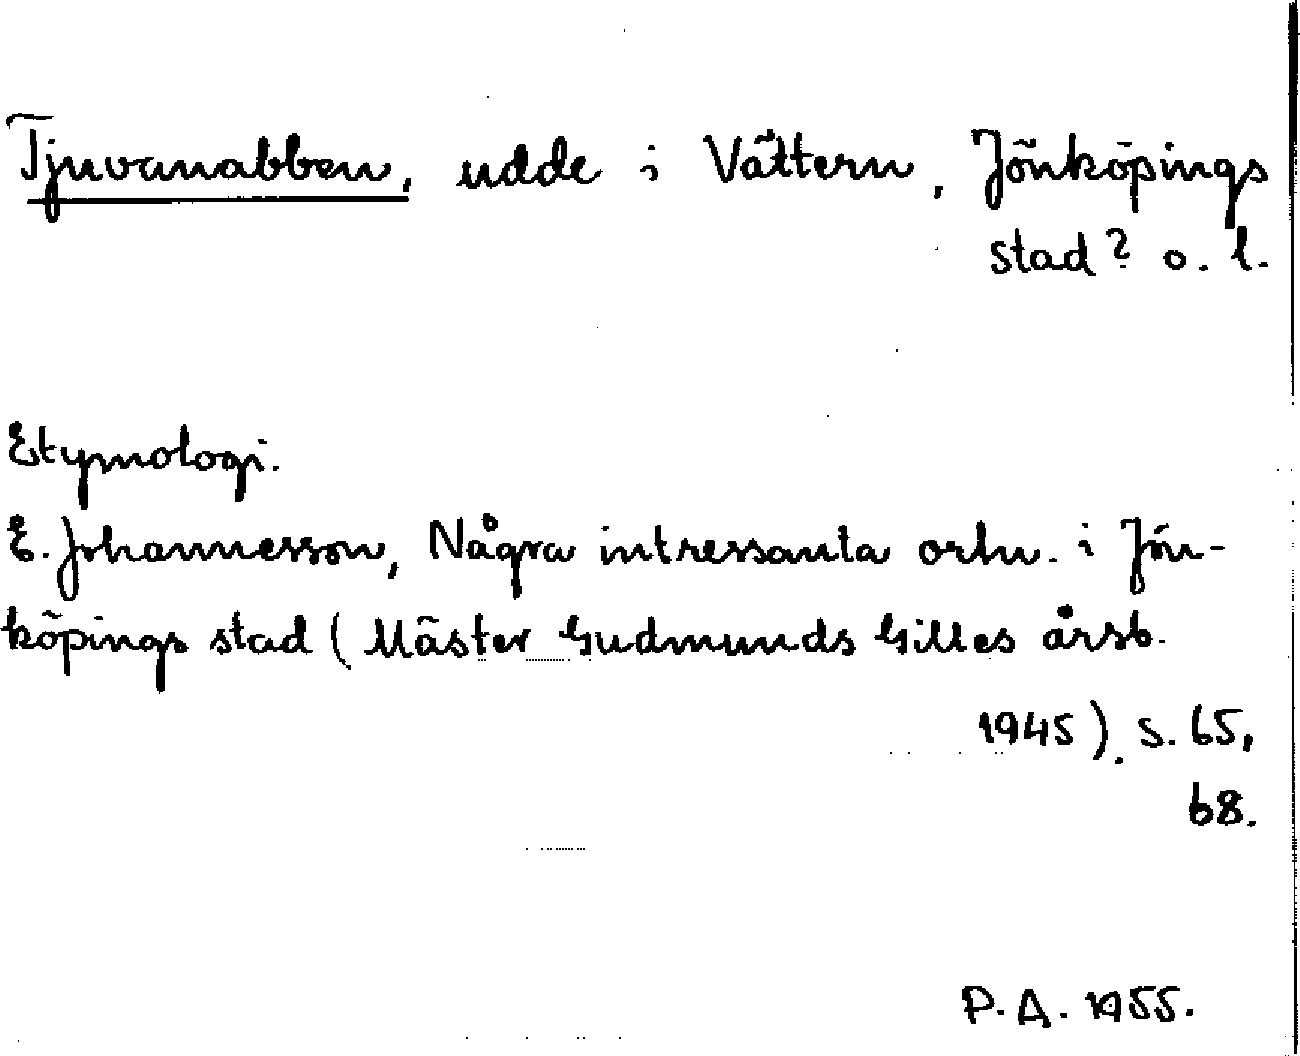 Tjuvanabben, udde i Vättern, Jönköpings
stad? o. l.
Etymologi.
E. Johannesson, Några intressanta ortn. i Jön-
köpings stad (Mäster Gudmunds Gilles årsb.
1945). s. 65,
68.
P. A. 1955.